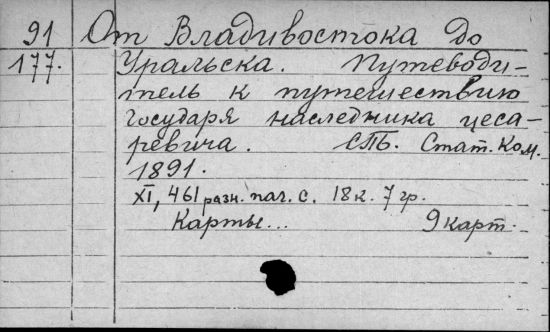 91 От Владивостока до
177. Уральска. Путеводи-
тель к путешествию
государя наследника цеса-
ревича. СПБ. Стат. Ком.
1891.
XI, 461 разн. паг. с. 18 к. 7 гр.
Карты... 9 карт.